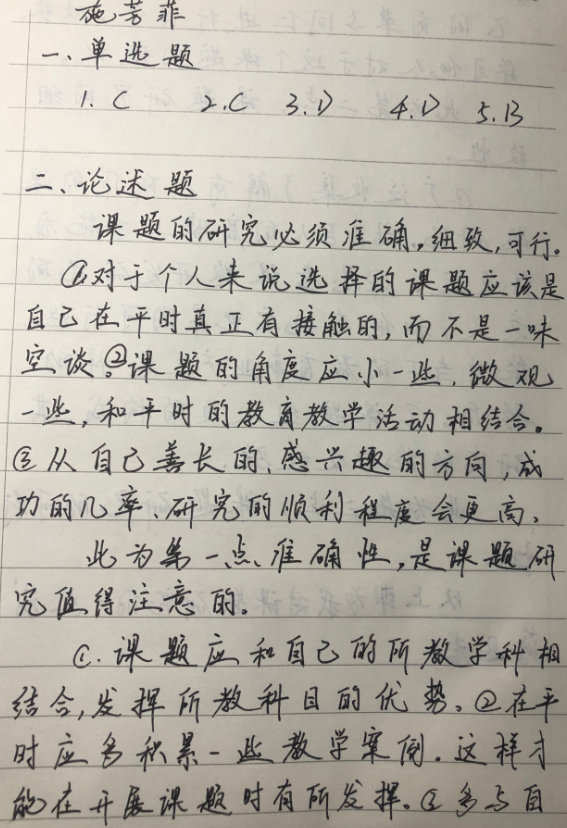 施芳菲
一、单选题
1. C 2. C 3. D 4. D 5. B
二、论述题
课题的研究必须准确,细致,可行。
①对于个人来说选择的课题应该是
自己在平时真正有接触的,而不是一味
空谈。②课题的角度应小一些,微观
一些,和平时的教育教学活动相结合。
③从自己善长的、感兴趣的方向,成
功的几率、研究的顺利程度会更高、
此为第一点、准确性,是课题研
究值得注意的。
①.课题应和自己的所教学科相
结合,发挥所教科目的优势。②在平
时应多积累一些教学案例.这样才
能在开展课题时有所发挥。③多与自